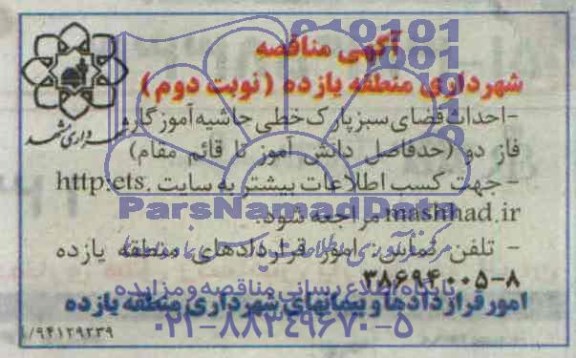 آگهی مناقصه
شهرداری منطقه یازده (نوبت دوم)
شهرداری مشهد
-احداث فضای سبز پارک خطی حاشیه آموزگاره
فاز دو (حدفاصل دانش آموز تا قائم مقام)
- جهت کسب اطلاعات بیشتر به سایت http:ets.
mashhad.ir مراجعه شود.
- تلفن تماس: امور قراردادهای منطقه یازده
۳۸۶۹۴۰۰۵-۸
امور قراردادها و پیمانهای شهرداری منطقه یازده
۹۴۱۲۹۲۳۹/
ParsNamadData
پایگاه اطلاع رسانی مناقصه و مزایده
۰۲۱-۸۸۳۴۹۶۷۰-۵